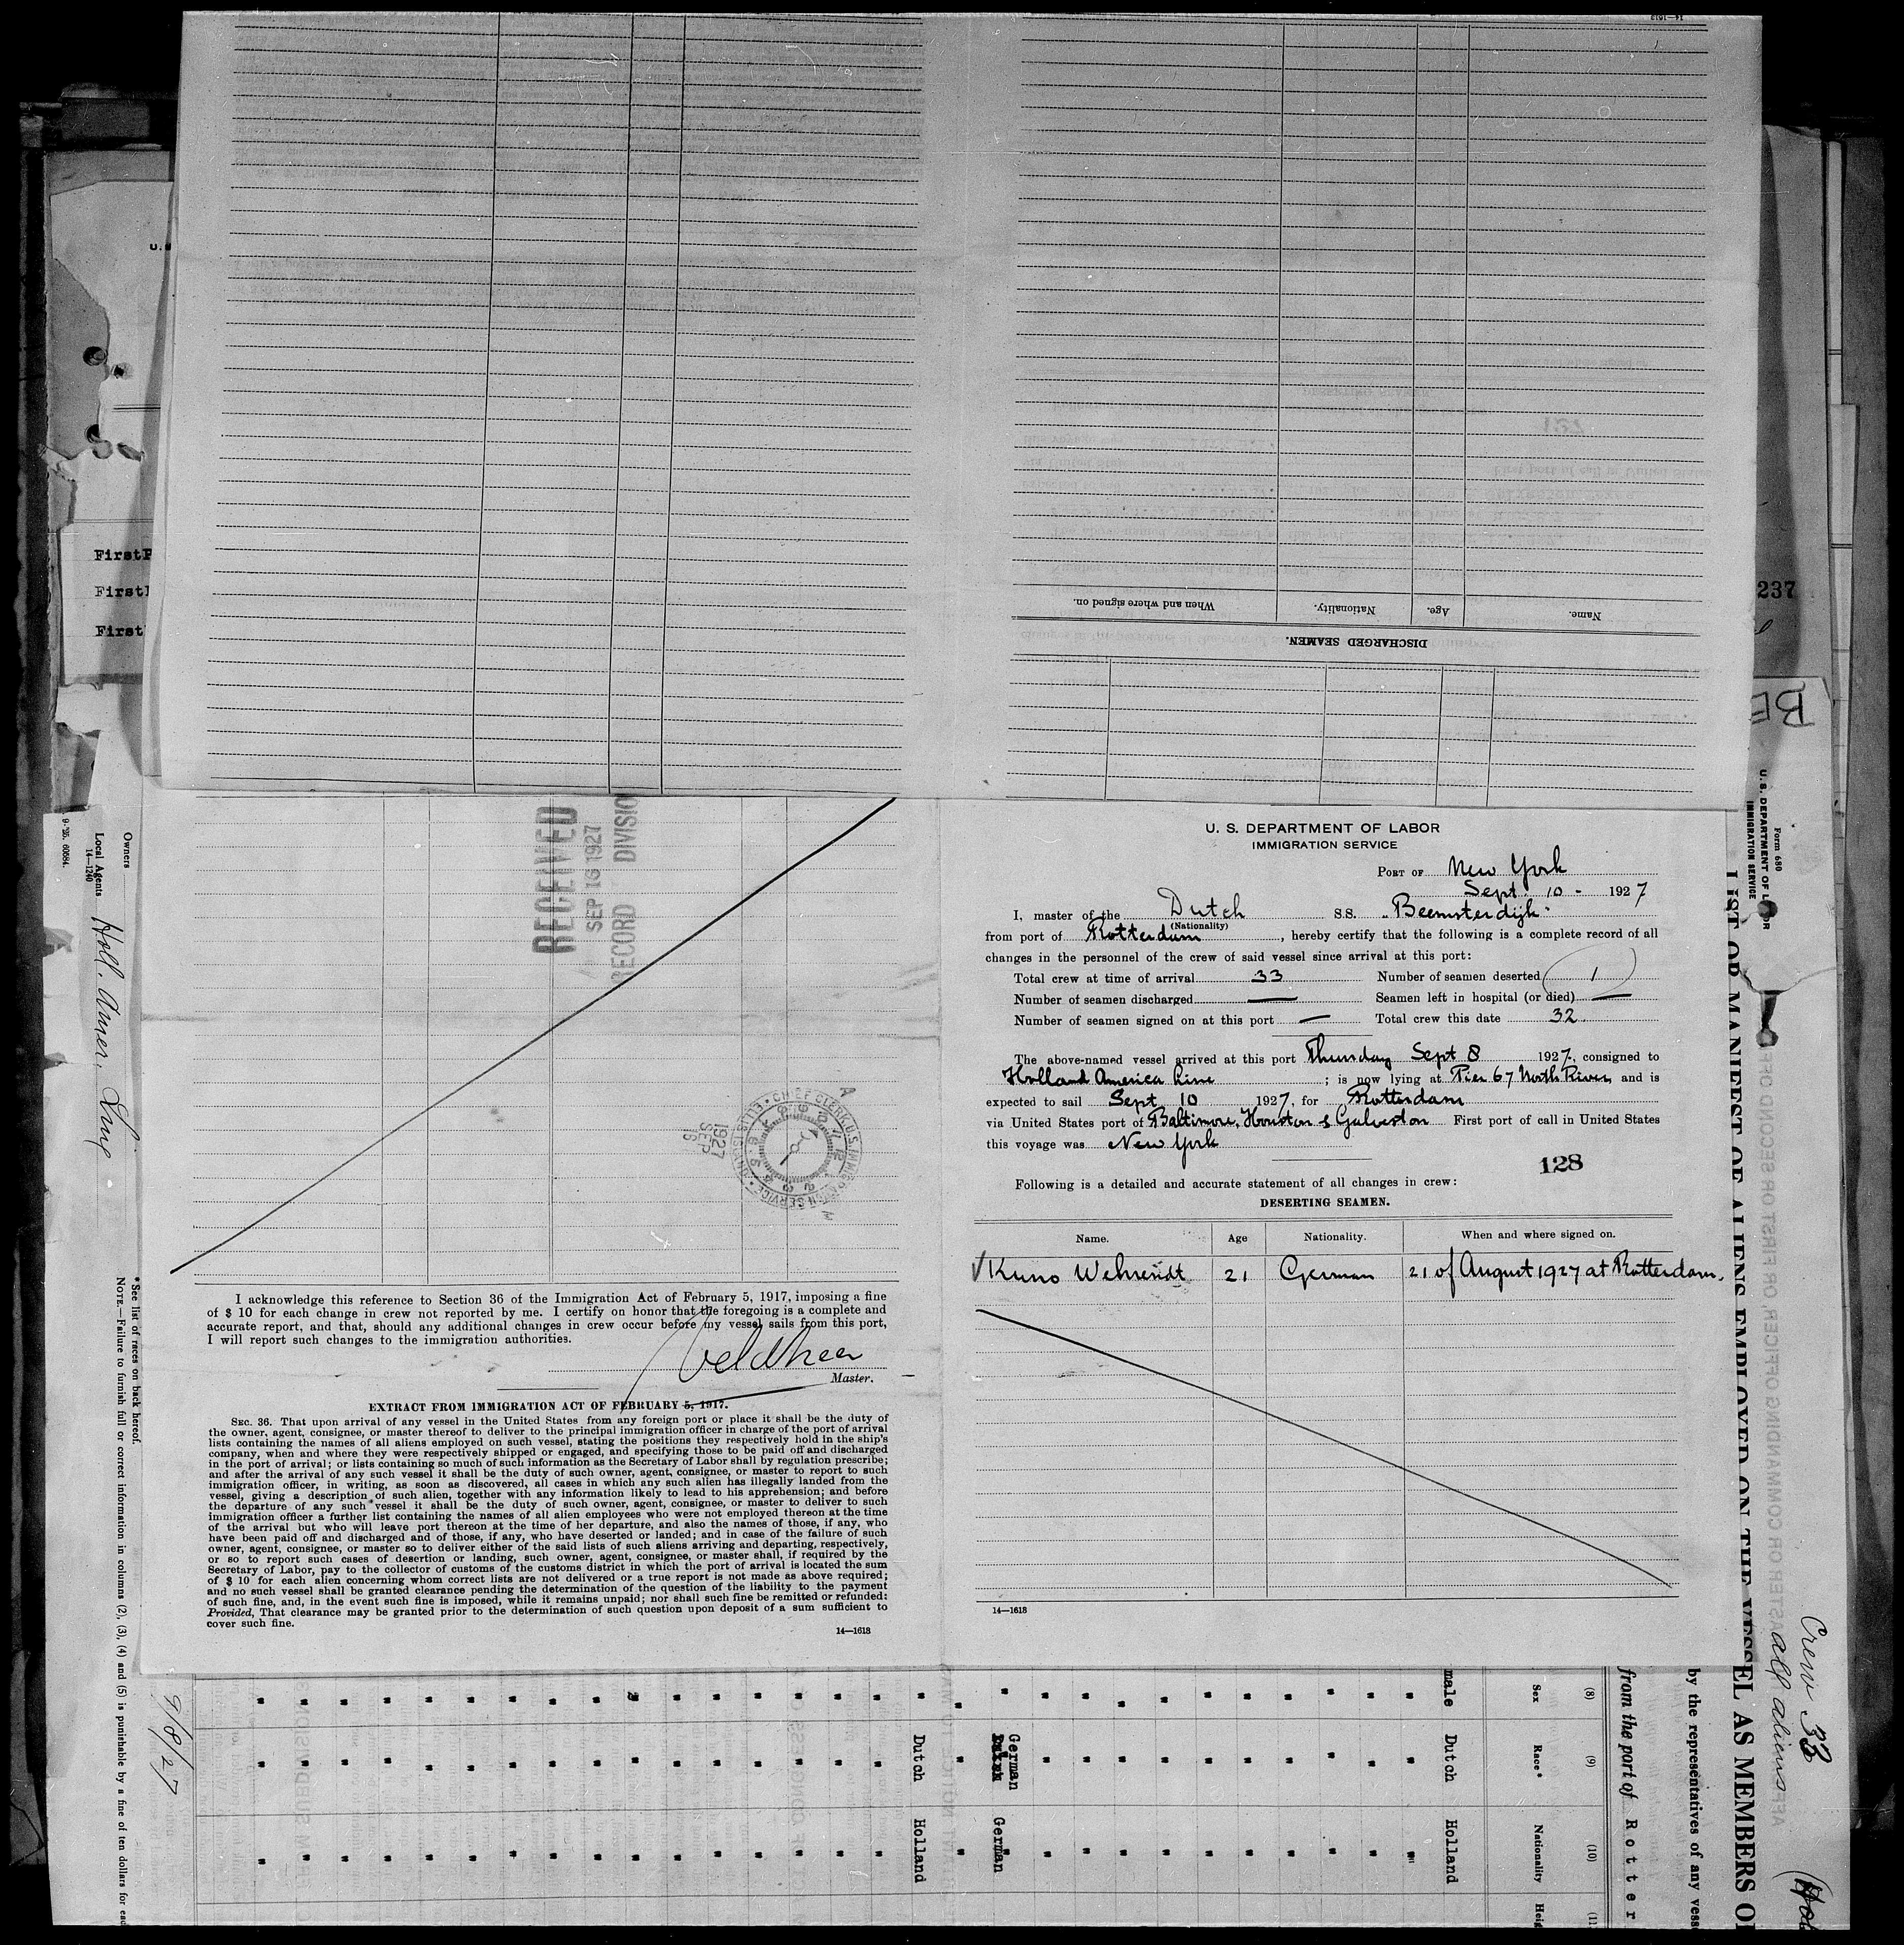 14—1618
Name.
Age.
Nationality.
When and where signed on.
DISCHARGED SEAMEN.
U. S. DEPARTMENT OF LABOR
IMMIGRATION SERVICE
PORT OF New York
Sept. 10 - 1927
I, master of the Dutch S.S. "Beemsterdijk"
(Nationality)
from port of Rotterdam, hereby certify that the following is a complete record of all
changes in the personnel of the crew of said vessel since arrival at this port:
Total crew at time of arrival 33 Number of seamen deserted 1
Number of seamen discharged — Seamen left in hospital (or died) —
Number of seamen signed on at this port — Total crew this date 32
The above-named vessel arrived at this port Thursday Sept 8 1927, consigned to
Holland America Line; is now lying at Pier 67 North River, and is
expected to sail Sept 10 1927, for Rotterdam
via United States port of Baltimore, Houston & Galveston First port of call in United States
this voyage was New York
128
Following is a detailed and accurate statement of all changes in crew:
DESERTING SEAMEN.
Name. Age Nationality. When and where signed on.
√ Kuno Wehrendt 21 German 21 of August 1927 at Rotterdam.
14—1618
RECEIVED
SEP 16 1927
RECORD DIVISION
CHIEF CLERK, U.S. IMMIGRATION SERVICE
ELLIS ISLAND
1927
SEP
I acknowledge this reference to Section 36 of the Immigration Act of February 5, 1917, imposing a fine
of $ 10 for each change in crew not reported by me. I certify on honor that the foregoing is a complete and
accurate report, and that, should any additional changes in crew occur before my vessel sails from this port,
I will report such changes to the immigration authorities.
Veldheer
Master.
EXTRACT FROM IMMIGRATION ACT OF FEBRUARY 5, 1917.
SEC. 36. That upon arrival of any vessel in the United States from any foreign port or place it shall be the duty of
the owner, agent, consignee, or master thereof to deliver to the principal immigration officer in charge of the port of arrival
lists containing the names of all aliens employed on such vessel, stating the positions they respectively hold in the ship's
company, when and where they were respectively shipped or engaged, and specifying those to be paid off and discharged
in the port of arrival; or lists containing so much of such information as the Secretary of Labor shall by regulation prescribe;
and after the arrival of any such vessel it shall be the duty of such owner, agent, consignee, or master to report to such
immigration officer, in writing, as soon as discovered, all cases in which any such alien has illegally landed from the
vessel, giving a description of such alien, together with any information likely to lead to his apprehension; and before
the departure of any such vessel it shall be the duty of such owner, agent, consignee, or master to deliver to such
immigration officer a further list containing the names of all alien employees who were not employed thereon at the time
of the arrival but who will leave port thereon at the time of her departure, and also the names of those, if any, who
have been paid off and discharged and of those, if any, who have deserted or landed; and in case of the failure of such
owner, agent, consignee, or master so to deliver either of the said lists of such aliens arriving and departing, respectively,
or so to report such cases of desertion or landing, such owner, agent, consignee, or master shall, if required by the
Secretary of Labor, pay to the collector of customs of the customs district in which the port of arrival is located the sum
of $ 10 for each alien concerning whom correct lists are not delivered or a true report is not made as above required;
and no such vessel shall be granted clearance pending the determination of the question of the liability to the payment
of such fine, and, in the event such fine is imposed, while it remains unpaid; nor shall such fine be remitted or refunded:
Provided, That clearance may be granted prior to the determination of such question upon deposit of a sum sufficient to
cover such fine.
14—1618
FirstP
First
First
237
BE
Form 680
U. S. DEPARTMENT OF LABOR
IMMIGRATION SERVICE
LIST OR MANIFEST OF ALIENS EMPLOYED ON THE VESSEL AS MEMBERS OF
by the representatives of any vesse
from the port of Rotter
Crew 33
all aliens
(Hol
(8) (9) (10) (11
Sex Race* Nationality Heig
male Dutch Holland
German German
Dutch Holland
9/8/27
*See list of races on back hereof.
NOTE.—Failure to furnish full or correct information in columns (2), (3), (4) and (5) is punishable by a fine of ten dollars for eac
Owners
Local Agents Holl. Amer. Line
14—1240